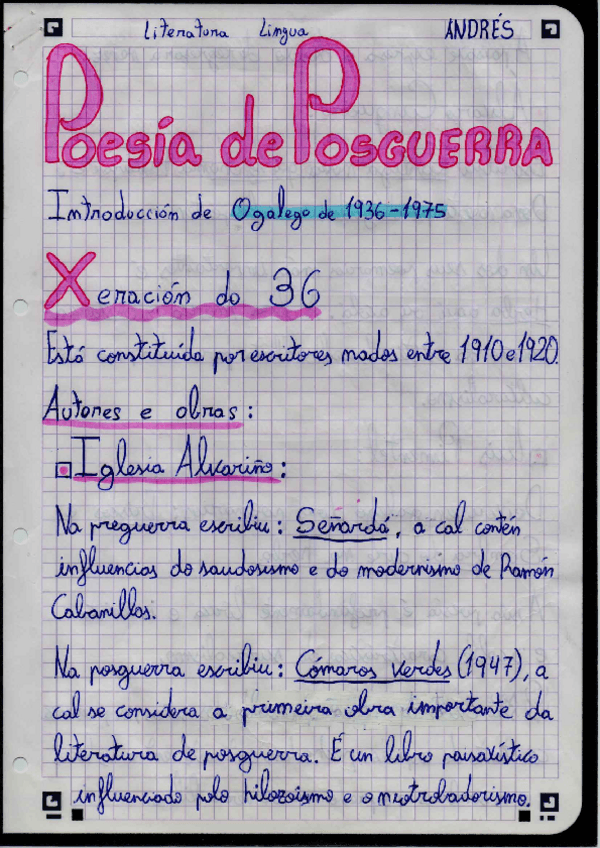 Literatura Lingua ANDRÉS
Poesía de POSGUERRA
Introducción de O galego de 1936-1975
Xeración do 36
Está constituída por escritores nados entre 1910 e 1920.
Autores e obras:
Iglesia Alvariño:
Na preguerra escribiu: Señardá, a cal contén
influencias do saudosismo e do modernismo de Ramón
Cabanillas.
Na posguerra escribiu: Cómaros verdes (1947), a
cal se considera a primeira obra importante da
literatura de posguerra. É un libro paisaxístico
influenciado polo hilozoísmo e o neotrobadorismo.